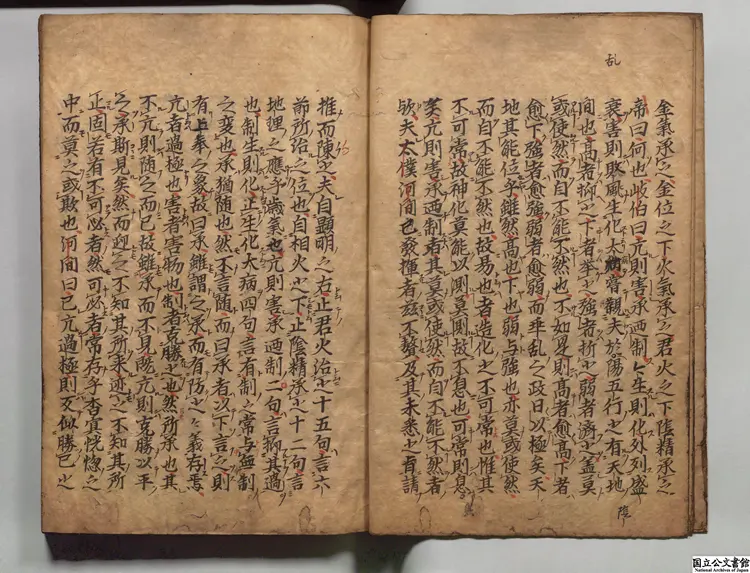 乱
金氣承之金位之下火氣承之君火之下陰精承之
帝曰何也岐伯曰亢則害承迺制〻生則化外列盛
衰害則敗亂生化大病嘗觀夫陰陽五行之有天地
間也高者抑之下者舉之強者折之弱者濟之盖莫
或使然而自不能不然也不如是則高者愈高下者
愈下強者愈強弱者愈弱而乖乱之政日以極矣天
地其能位乎雖然高也下也弱与強也亦莫或使然
而自不能不然也故易也者造化之不可常也惟其
不可常故神化莫能以測莫測故不息也可常則息
矣亢則害承迺制者其莫或使然而自不能不然者
欤夫太僕河間已發揮者玆不贅及其未悉之旨請
陰
推而陳之夫自顯明之右止君火治之十五句言六
節所治之位也自相火之下止陰精承之十二句言
地理之應乎歲氣也亢則害承迺制二句言抑其過
也制生則化止生化大病四句言有制之常与無制
之變也承猶随也然不言随而曰承者以下言之則
有上奉之象故曰承雖謂之承而有防之之義存焉
亢者過極也害者害物也制者克勝之也然所承也其
不亢則随之而已故雖承而不見既亢則克勝以平
之承斯見矣然而迎之不知其所来迹之不知其所
止固若有不可必者然可必者常存乎杳冥恍惚之
中而莫之或欺也河間曰己亢過極則反似勝己之
国立公文書館
National Archives of Japan